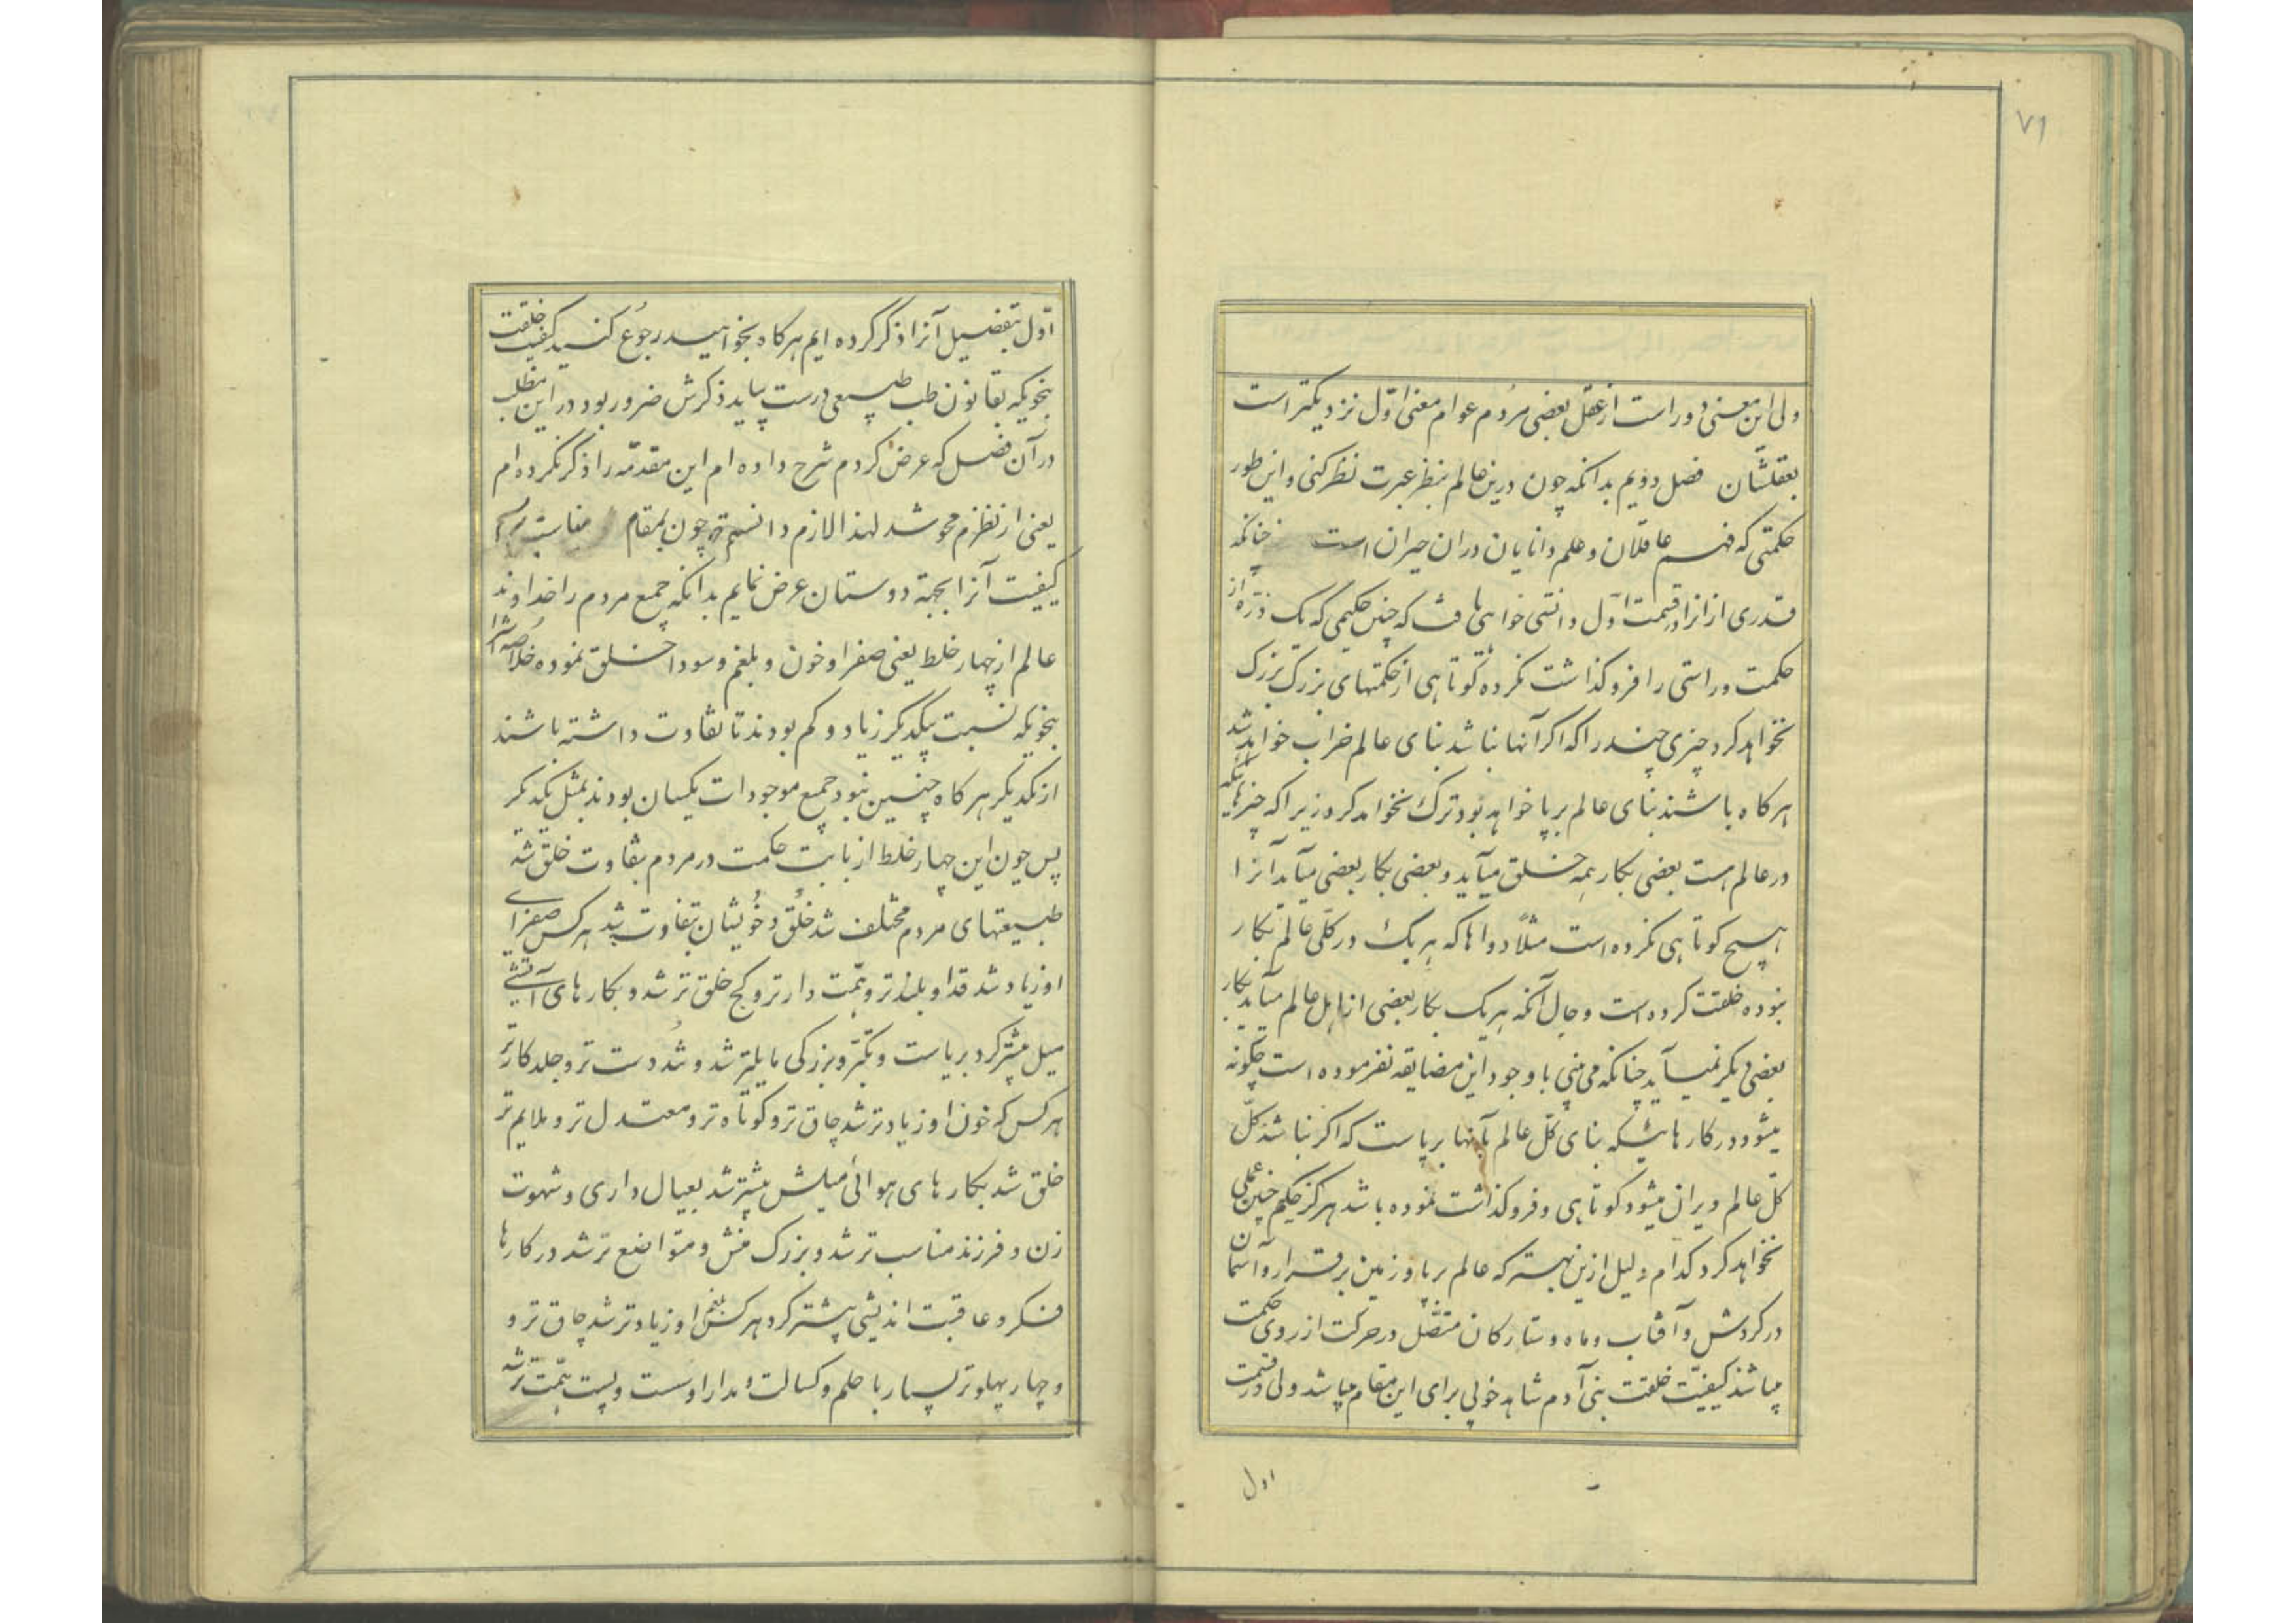 ۷۱
ولی این معنی دور است از عقل بعضی مردم عوام معنی اوّل نزدیکتر است
بعقلشان فصل دویم بدانکه چون درین عالم بنظر عبرت نظر کنی و این طور
حکمتی که فهم عاقلان و علم دانایان دران حیران است چنانکه
قدری از انرا در قسمت اوّل دانستی خواهی یافت که چنین حکیمی که یک ذرّه از
حکمت و راستی را فرو کذاشت نکرده کوتاهی از حکمتهای بزرک بزرک
نخواهد کرد چیزی چند را که اکر آنها نباشد بنای عالم خراب خواهد شد
هرکاه باشند بنای عالم برپا خواهد بود ترک نخواهد کرد زیرا که چیزهائیکه
در عالم هست بعضی بکار همه خلق میآید و بعضی بکار بعضی میآید آنرا
هیچ کوتاهی نکرده است مثلاً دواها که هر یک در کلّی عالم بکار
نبوده خلقت کرده است و حال آنکه هر یک بکار بعضی از اهل عالم میآید بکار
بعضی دیکر نمیآید چنانکه می بینی با وجود این مضایقه نفرموده است چکونه
میشود در کارهائیکه بنای کلّ عالم بآنها برپاست که اکر نباشد کلّ
کلّ عالم ویران میشود کوتاهی و فروکذاشت نموده باشد هرکز حکیم چنین عملی
نخواهد کرد کدام دلیل ازین بهتر که عالم برپا و زمین برقرار و آسمان
در کردش و آفتاب و ماه و ستارکان متصّل در حرکت از روی حکمت
میباشند کیفیّت خلقت بنی آدم شاهد خوبی برای این مقام میباشد ولی در قسمت
اول
اوّل بتفصیل آنرا ذکر کرده ایم هرکاه بخواهید رجوُع کنید کیفیت خلقت
بنحویکه بقانون طب طبیعی درست بیاید ذکرش ضرور بود در این مطلب
در آن فصل که عرض کردم شرح داده ام این مقدّمه را ذکر نکرده ام
یعنی از نظرم محو شد لهذا لازم دانستم چون بمقام مناسب
کیفیت آنرا بجهة دوستان عرض نمایم بدانکه جمیع مردم را خداوند
عالم از چهار خلط یعنی صفرا و خون و بلغم و سودا خلق نموده خلاصه آنرا
بنحویکه نسبت بیکدیکر زیاد و کم بودند تا تفاوت داشته باشند
از یکدیکر هرکاه چنین نبود جمیع موجودات یکسان بودند بمثل یکدیکر
پس چون این چهار خلط از بابت حکمت در مردم بتفاوت خلق شد
طبیعتهای مردم مختلف شد خُلق و خُویشان بتفاوت شد هرکس صفرای
او زیاد شد قد او بلندتر و همّت دارتر و کج خلق تر شد و بکارهای آتشی
میل بیشتر کرد بریاست و تکبّر و بزرکی مایلتر شد و تُند دست تر و جلد کارتر
هرکس که خون او زیادتر شد چاق تر و کوتاه تر و معتدل تر و ملایم تر
خلق شد بکارهای هوائی میلش بیشتر شد بعیال داری و شهوت
زن و فرزند مناسب تر شد و بزرک منش و متواضع تر شد در کارها
فکر و عاقبت اندیشی بیشتر کرد هرکس بلغم او زیادتر شد چاق تر و
و چهار پهلوتر بسیار با حلم و کسالت و مدارا و سست و پست همّت تر شد